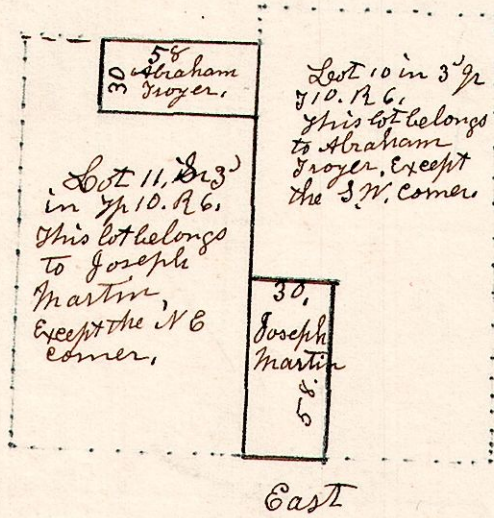 58
30
Abraham
Troyer.
Lot 10 in 3d qr
T10. R6.
This lot belongs
to Abraham
Troyer. Except
the S.W. Corner.
Lot 11, 3d
in Tp 10. R6.
This lot belongs
to Joseph
Martin,
Except the NE
corner.
30.
Joseph
Martin
58.
East